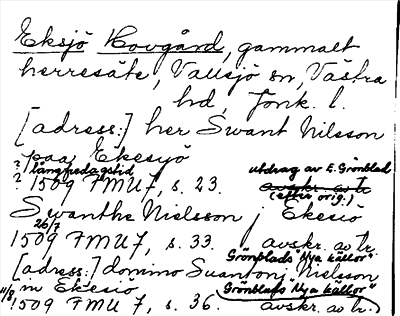 Eksjö Hovgård, gammalt
herresäte, Vallsjö sn, Västra
hd, Jönk. l.
[adress:] her Swant Nilsson
paa Ekesyö
? långfredagstid utdrag av E. Grönblad
? 1509 FMU 7, s. 23. avskr. av tr. (efter orig.)
Swanthe Nielsson j Ekesiö
26/7
1509 FMU 7, s. 33. avskr. av tr.
Grönblads "Nya källor"
[adress:] domino Suantonj Nielsson
in Ekesio Grönblads "Nya källor"
11/8 1509 FMU 7, s. 36. avskr. av tr.